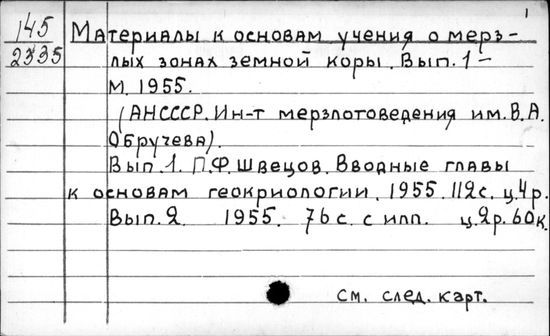 1
145
2335
Материалы к основам учения о мерз-
лых зонах земной коры. Вып. 1 –
М. 1955.
(АНСССР. Ин-т мерзлотоведения им. В. А.
Обручева).
Вып. 1. П.Ф. Швецов. Вводные главы
к основам геокриологии. 1955. 112 с. ц. 4 р.
Вып. 2. 1955. 76 с. с илл. ц. 2 р. 60 к.
см. след. карт.